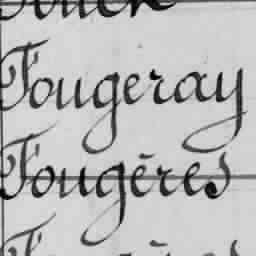 Fougeray
Fougères